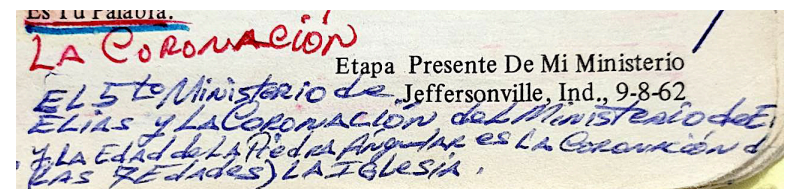 Es Tu Palabra.
LA CORONACIÓN
Etapa Presente De Mi Ministerio
EL 5to Ministerio de Jeffersonville, Ind., 9-8-62
ELIAS y LA CORONACIÓN del Ministerio de E
y LA Edad de LA Piedra Angular es LA Coronación d
(LAS 7 Edades) LA IGLESIA.